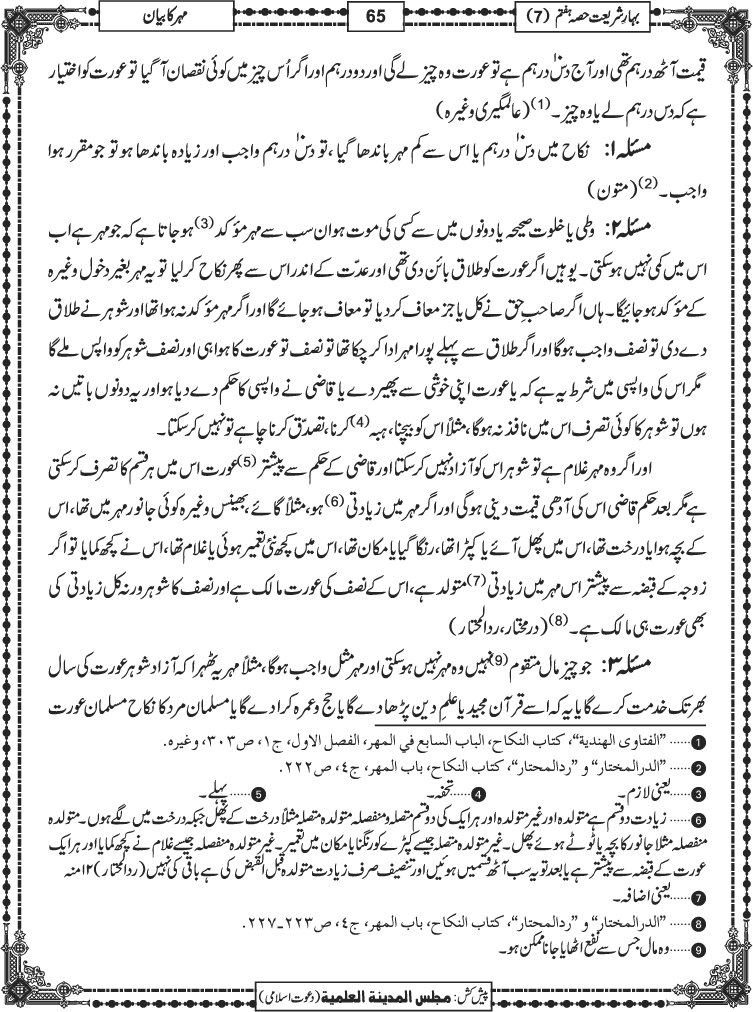 بہارِ شریعت حصہ ہفتم (7)
65
مہر کا بیان
قیمت آٹھ درہم تھی اور آج دس۱۰ درہم ہے تو عورت وہ چیز لے گی اور دو درہم اور اگر اُس چیز میں کوئی نقصان آگیا تو عورت کو اختیار
ہے کہ دس درہم لے یا وہ چیز۔(1) (عالمگیری وغیرہ)
مسئلہ ۱: نکاح میں دس۱۰ درہم یا اس سے کم مہر باندھا گیا، تو دس۱۰ درہم واجب اور زیادہ باندھا ہو تو جو مقرر ہوا
واجب۔(2) (متون)
مسئلہ ۲: وطی یا خلوت صحیحہ یا دونوں میں سے کسی کی موت ہو ان سب سے مہر مؤکد(3) ہو جاتا ہے کہ جو مہر ہے اب
اس میں کمی نہیں ہوسکتی۔ یوہیں اگر عورت کو طلاق بائن دی تھی اور عدّت کے اندر اس سے پھر نکاح کر لیا تو یہ مہر بغیر دخول وغیرہ
کے مؤکد ہو جائیگا۔ ہاں اگر صاحبِ حق نے کل یا جز معاف کردیا تو معاف ہو جائے گا اور اگر مہر مؤکد نہ ہوا تھا اور شوہر نے طلاق
دے دی تو نصف واجب ہوگا اور اگر طلاق سے پہلے پورا مہر ادا کر چکا تھا تو نصف تو عورت کا ہوا ہی اور نصف شوہر کو واپس ملے گا
مگر اس کی واپسی میں شرط یہ ہے کہ یا عورت اپنی خوشی سے پھیر دے یا قاضی نے واپسی کا حکم دے دیا ہو اور یہ دونوں باتیں نہ
ہوں تو شوہر کا کوئی تصرف اس میں نافذ نہ ہوگا، مثلاً اس کو بیچنا، ہبہ(4) کرنا، تصدّق کرنا چاہے تو نہیں کرسکتا۔
اور اگر وہ مہر غلام ہے تو شوہر اس کو آزاد نہیں کرسکتا اور قاضی کے حکم سے پیشتر(5) عورت اس میں ہر قسم کا تصرف کرسکتی
ہے مگر بعد حکم قاضی اس کی آدھی قیمت دینی ہوگی اور اگر مہر میں زیادتی(6) ہو، مثلاً گائے، بھینس وغیرہ کوئی جانور مہر میں تھا، اس
کے بچہ ہوا یا درخت تھا، اس میں پھل آئے یا کپڑا تھا، رنگا گیا یا مکان تھا، اس میں کچھ نئی تعمیر ہوئی یا غلام تھا، اس نے کچھ کمایا تو اگر
زوجہ کے قبضہ سے پیشتر اس مہر میں زیادتی(7) متولد ہے، اس کے نصف کی عورت مالک ہے اور نصف کا شوہر ورنہ کل زیادتی کی
بھی عورت ہی مالک ہے۔(8) (درمختار، ردالمحتار)
مسئلہ ۳: جو چیز مال متقوم(9) نہیں وہ مہر نہیں ہوسکتی اور مہر مثل واجب ہوگا، مثلاً مہر یہ ٹھہرا کہ آزاد شوہر عورت کی سال
بھر تک خدمت کرے گا یا یہ کہ اسے قرآن مجید یا علمِ دین پڑھا دے گا یا حج و عمرہ کرا دے گا یا مسلمان مرد کا نکاح مسلمان عورت
1 ...... ”الفتاوی الھندیة“، کتاب النکاح، الباب السابع في المھر، الفصل الاول، ج۱، ص۳۰۳، وغیرہ.
2 ...... ”الدرالمختار“ و ”ردالمحتار“، کتاب النکاح، باب المھر، ج٤، ص۲۲۲.
3 ......یعنی لازم۔ 4 ......تحفہ۔ 5 ......پہلے۔
6 ...... زیادت دو قسم ہے متولدہ اور غیر متولدہ اور ہر ایک کی دو قسم متصلہ و منفصلہ متولدہ متصلہ مثلاً درخت کے پھل جبکہ درخت میں لگے ہوں۔ متولدہ
منفصلہ مثلا جانور کا بچہ یا ٹوٹے ہوئے پھل۔ غیر متولدہ متصلہ جیسے کپڑے کو رنگنا یا مکان میں تعمیر۔ غیر متولدہ منفصلہ جیسے غلام نے کچھ کمایا اور ہر ایک
عورت کے قبضہ سے پیشتر ہے یا بعد تو یہ سب آٹھ قسمیں ہوئیں اور تنصیف صرف زیادت متولدہ قبل القبض کی ہے باقی کی نہیں (ردالمحتار) ۱۲ منہ
7 ......یعنی اضافہ۔
8 ...... ”الدرالمختار“ و ”ردالمحتار“، کتاب النکاح، باب المھر، ج٤، ص۲۲۳۔۲۲۷.
9 ......وہ مال جس سے نفع اٹھایا جانا ممکن ہو۔
پیش کش: مجلس المدينة العلمية (دعوت اسلامی)